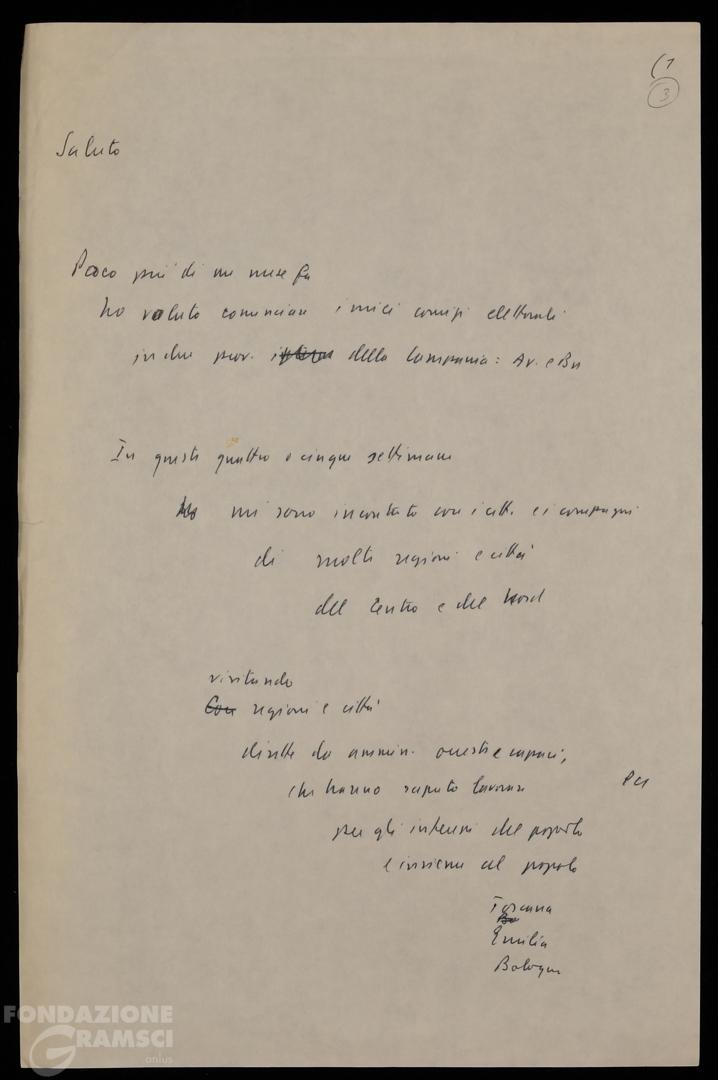 (1
3
Saluto
Poco più di un mese fa
ho voluto cominciare i miei comizi elettorali
in due prov. della Campania: Av. e Bn
In questi quattro o cinque settimane
mi sono incontrato con i citt. e i compagni
di molti regioni e città
del Centro e del Nord
visitando
Con regioni e città
dirette da ammin. onesti e capaci,
che hanno saputo lavorare
PCI
per gli interessi del popolo
e insieme al popolo
Toscana
Bo
Emilia
Bologna
FONDAZIONE
GRAMSCI
onlus